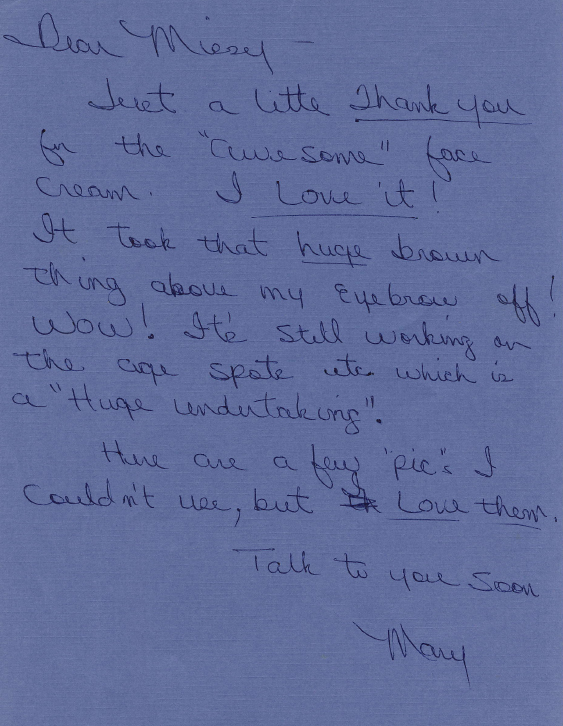 Dear Miesy –
Just a little Thank you
for the "awesome" face
cream. I Love it!
It took that huge brown
thing above my Eyebrow off!
Wow! It's still working on
the age spots etc. which is
a "Huge undertaking".
Here are a few 'pic's I
couldn't use, but Love them.
Talk to you soon
Mary